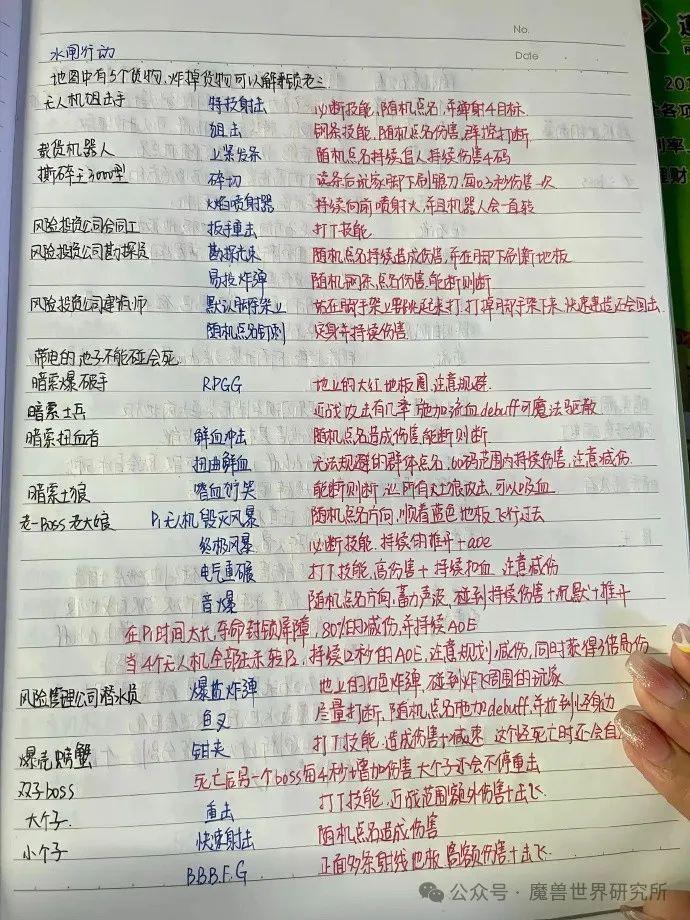 No.
Date
水闸行动
地图中有5个货物，炸掉货物可以解锁老三
无人机狙击手 特技射击 必断技能，随机点名，并溅射4目标
狙击 钢条技能，随机点名伤害，群控打断
载货机器人 上紧发条 随机点名持续追人持续伤害4码
撕碎王3000型 碎切 读条后玩家脚下刷锯刀每0.3秒伤害一次
火焰喷射器 持续向前喷射火，并且机器人会一直转
风险投资公司合同工 扳手重击 打T技能
风险投资公司勘探员 勘探光束 随机点名持续造成伤害，并在脚下刷新地板
易投炸弹 随机点名伤害，能断则断
风险投资公司建筑师 默认脚手架上 站在脚手架上要跳起来打，打掉脚手架下来，快速建造还会回去
随机点名钉刺 定身并持续伤害
带电的池子不能碰会死
暗索爆破手 RPGG 地上的大红地板圈，注意规避
暗索士兵 近战攻击有几率施加流血debuff可魔法驱散
暗索扭血者 鲜血冲击 随机点名造成伤害，能断则断
扭曲鲜血 无法规避的群体点名，60码范围内持续伤害，注意减伤
暗索土狼 嗜血狞笑 能断则断，所有土狼攻击，可以吸血
老一Boss老大娘 P1无人机毁灭风暴 随机点名方向，顺着蓝色地板飞行过去
终极风暴 必断技能，持续的推开+aoe
电气重碾 打T技能，高伤害+持续扣血，注意减伤
音爆 随机点名方向，蓄力声波，碰到持续伤害+沉默+推开
在P1时间太长，夺命封锁屏障，80%的减伤，并持续AOE
当4个无人机全部击杀转P2，持续12秒的AOE，注意规划减伤，同时获得3倍易伤
风险管理公司潜水员 爆盐炸弹 地上的红色炸弹，碰到炸飞周围的玩家
鱼叉 尽量打断，随机点名施加debuff，并拉到怪身边
爆壳螃蟹 钳夹 打T技能，造成伤害+减速，这个怪死亡时还会自
双子boss 死亡后另一个boss每4秒+增加伤害 大个子还会不停重击
大个子 重击 打T技能，近战范围额外伤害+击飞
小个子 快速射击 随机点名造成伤害
B.B.B.F.G 正面多条射线地板，高额伤害+击飞
公众号·魔兽世界研究所